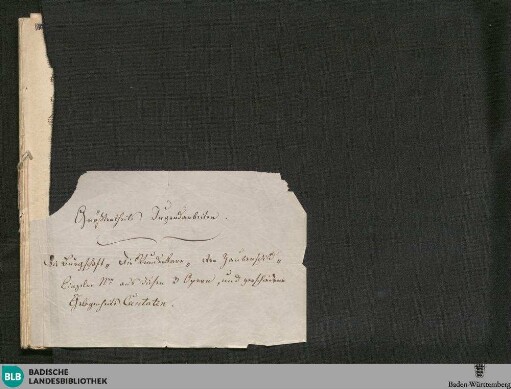 Größtentheils Jugendarbeiten.
Die Bürgschaft, die Wunderkur, der Zauberschlaf,
Einzelne Nrn aus diesen 3 Opern, und verschiedene
Gelegenheits Cantaten.
BLB BADISCHE
LANDESBIBLIOTHEK
Baden-Württemberg